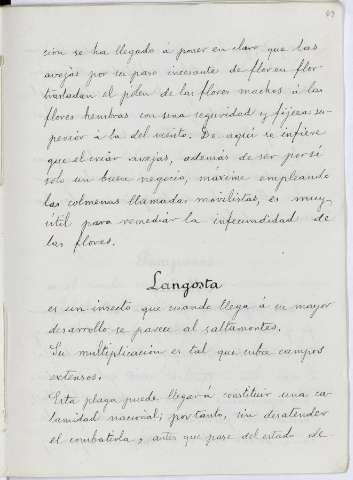 cion se ha llegado á poner en claro que las
avejas por su paso incesante de flor en flor
trasladan el polen de las flores machos á las
flores hembras con una seguridad y fijeza su-
perior á la del viento. De aquí se infiere
que el criar avejas, además de ser por sí
solo un buen negocio, máxime empleando
las colmenas llamadas móvilistas, es muy
útil para remediar la infecundidad de
las flores.
Langosta
es un insecto que cuando llega á su mayor
desarrollo se parece al saltamontes.
Su multiplicación es tal que cubre campos
extensos.
Esta plaga puede llegar á constituir una ca-
lamidad nacional; por tanto, sin desatender
el combatirla, antes que pase del estado de